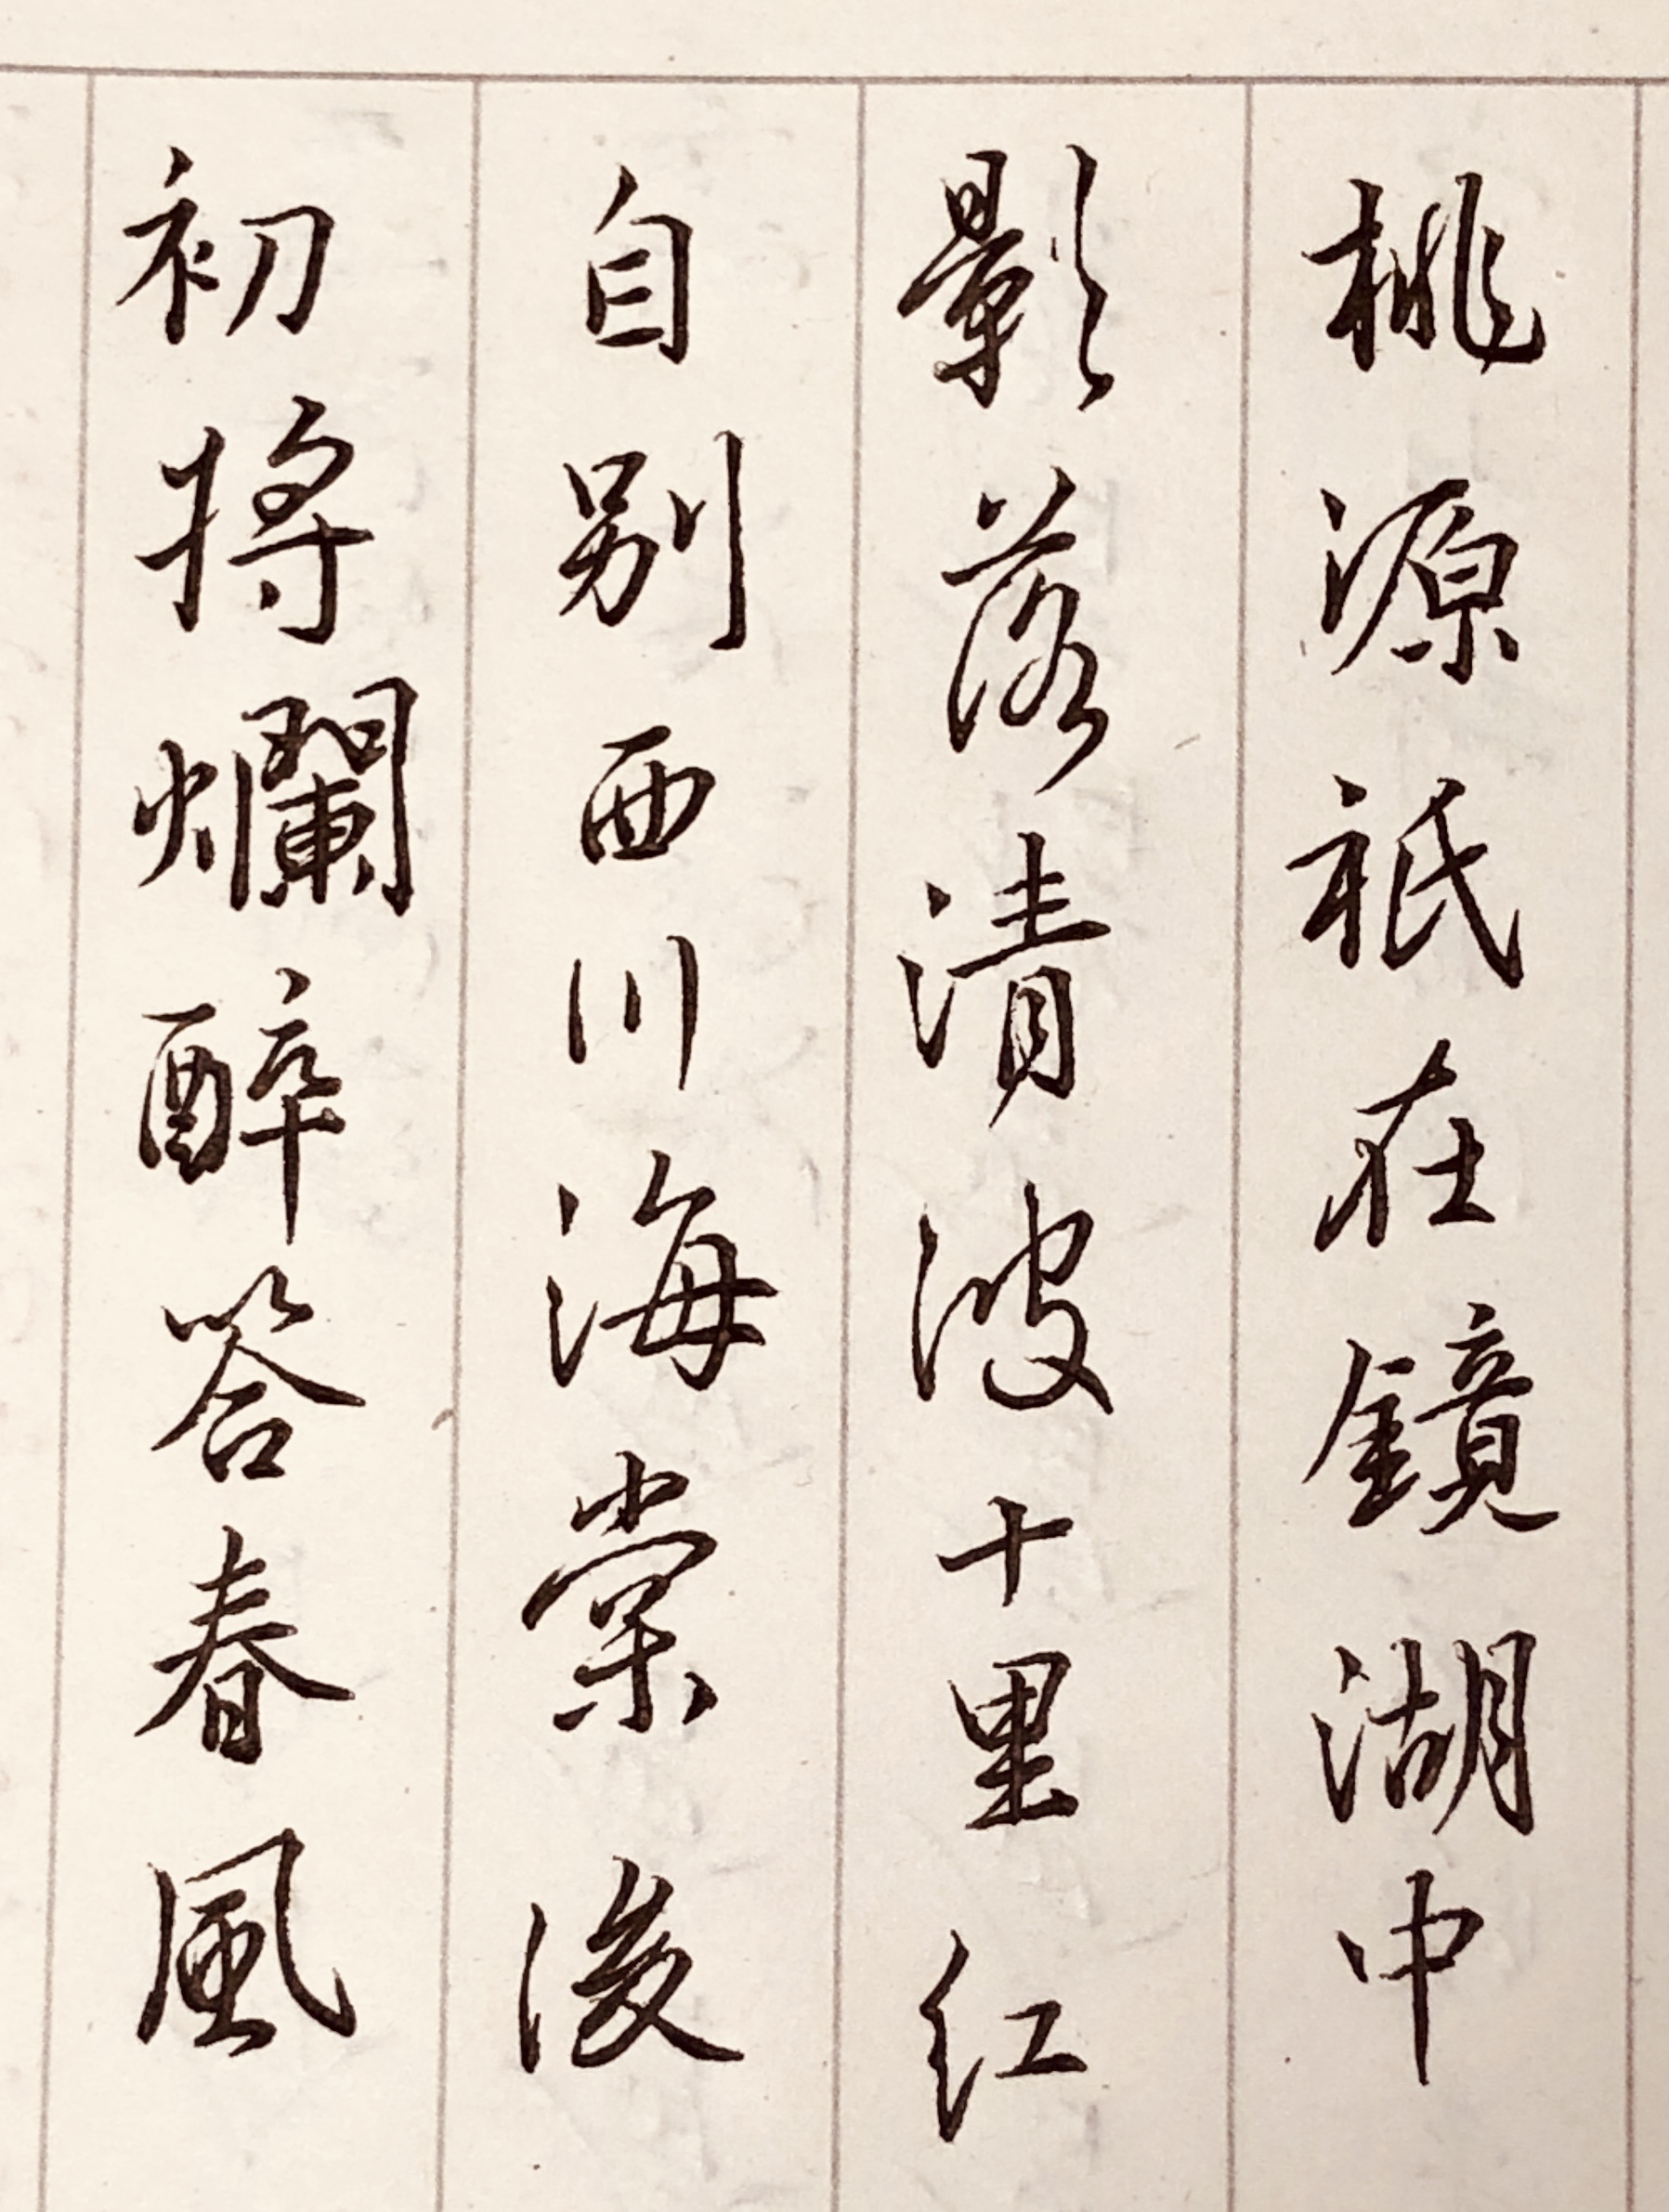 桃源祇在鏡湖中
影落清波十里红
自别西川海棠後
初將爛醉答春風